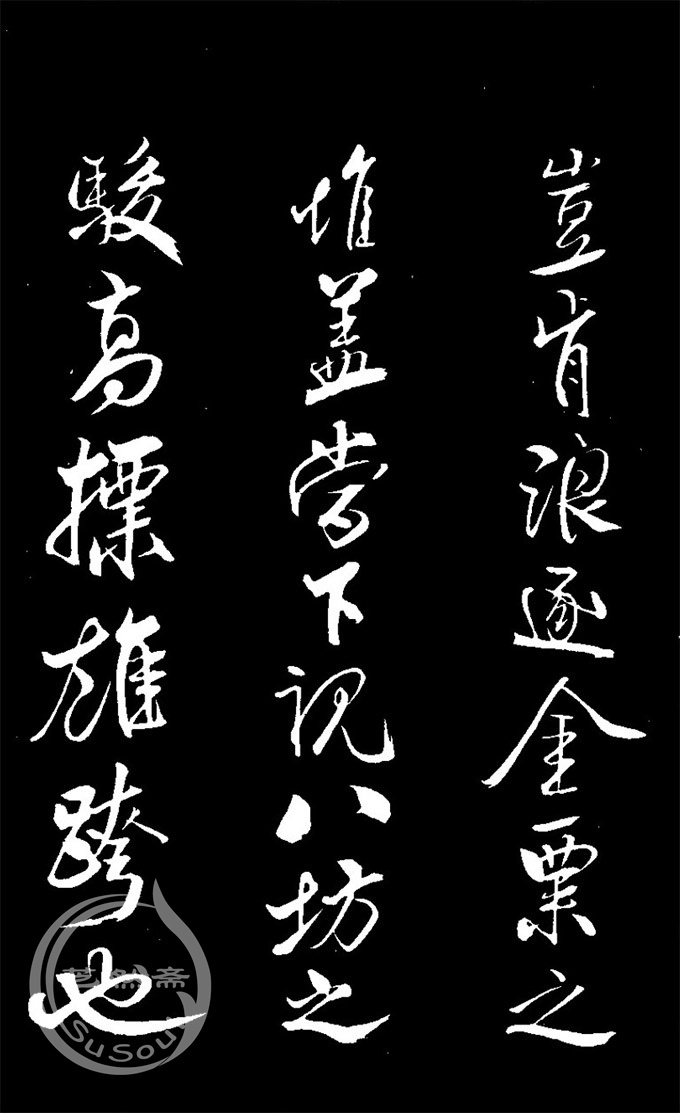 豈肯浪逐金粟之
堆盖當下視八坊之
駿高標雄跨也
SuSou